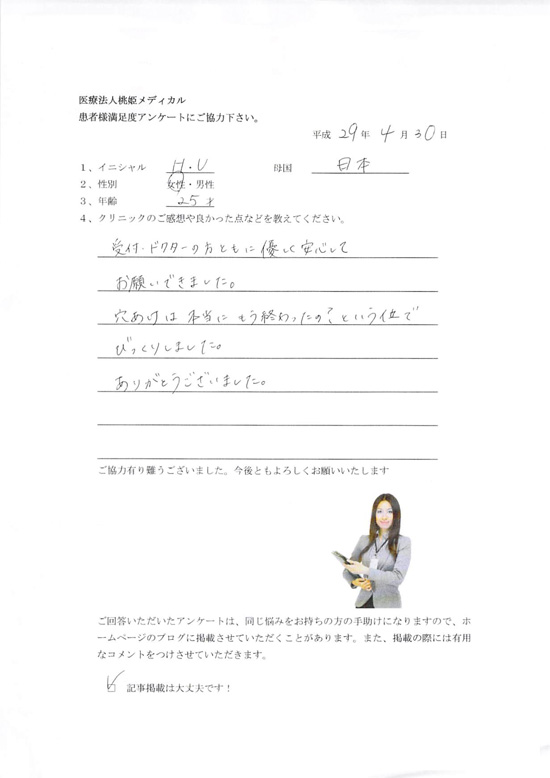 医療法人桃姫メディカル
患者様満足度アンケートにご協力下さい。
平成 29 年 4 月 30 日
1、イニシャル H・U 母国 日本
2、性別 女性・男性
3、年齢 25才
4、クリニックのご感想や良かった点などを教えてください。
受付・ドクターの方ともに優しく安心して
お願いできました。
穴あけは本当にもう終わったの?という位で
びっくりしました。
ありがとうございました。
ご協力有り難うございました。今後ともよろしくお願いいたします
ご回答いただいたアンケートは、同じ悩みをお持ちの方の手助けになりますので、ホ
ームページのブログに掲載させていただくことがあります。また、掲載の際には有用
なコメントをつけさせていただきます。
記事掲載は大丈夫です!